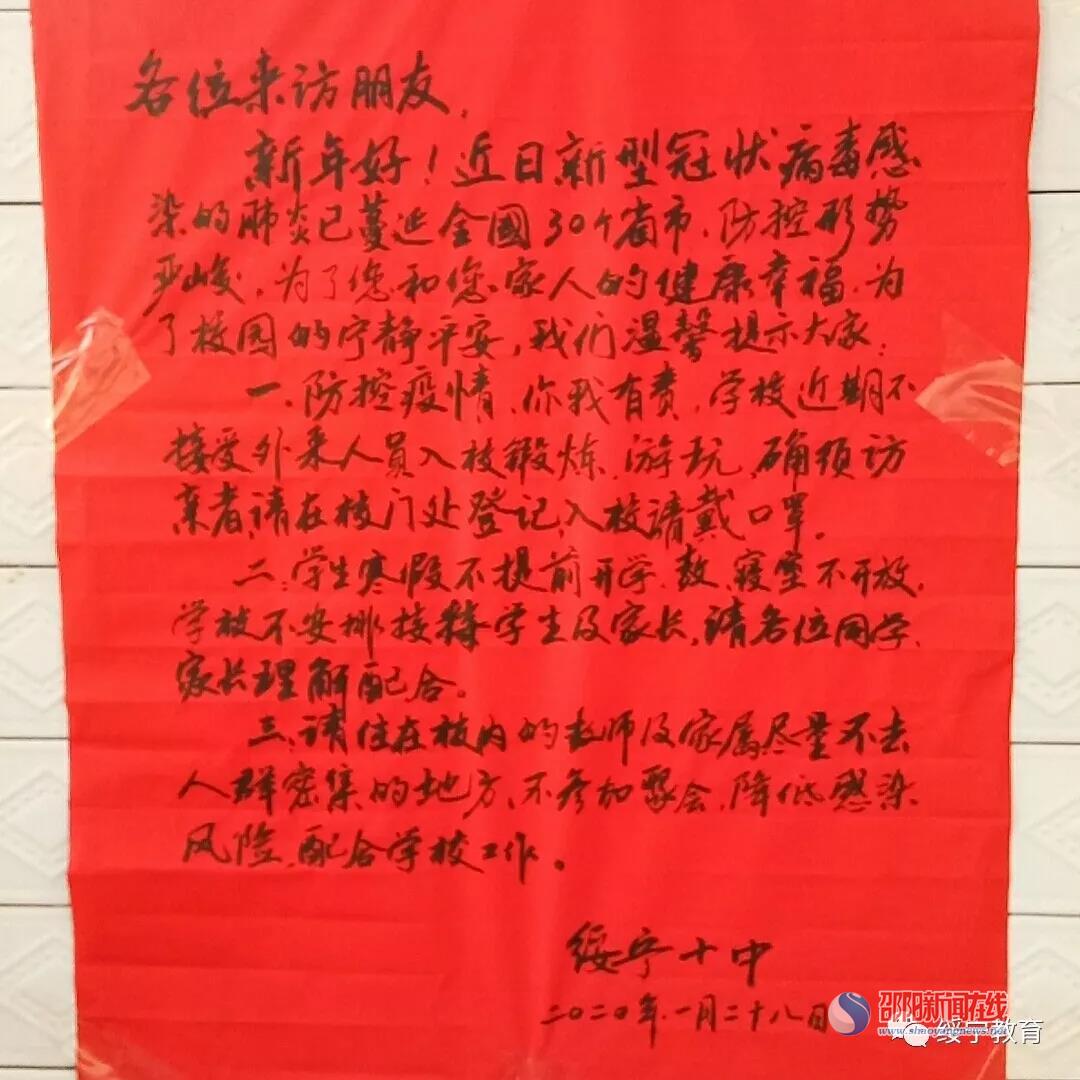 各位来访朋友,
新年好！近日新型冠状病毒感
染的肺炎已蔓延全國30个省市、防控形势
严峻,为了您和您家人的健康幸福、为
了校园的宁静平安,我们温馨提示大家:
一、防控疫情、你我有责,学校近期不
接受外来人员入校锻炼、游玩,确须访
亲者,请在校门处登记,入校请戴口罩。
二:学生寒假不提前开学、教、寝室不开放,
学校不安排接待学生及家长,请各位同学、
家长理解配合。
三、请住在校内的老师及家属尽量不去
人群密集的地方、不参加聚会、降低感染
风险、配合学校工作。
绥宁十中
二〇二〇年.一月二十八日
邵阳新闻在线
www.shaoyangnews.net
绥宁教育